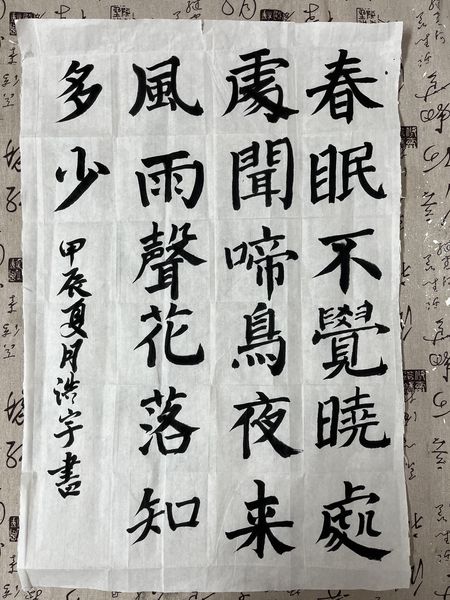 春眠不覺曉處
處聞啼鳥夜来
風雨聲花落知
多少
甲辰夏月浩宇書